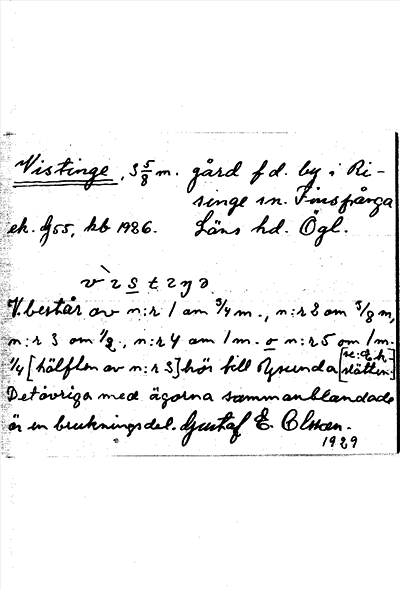 Vistinge, 3 5/8 m. gård f d. by i Ri-
singe sn. Finspånga
ek. G55, kb 1926. Läns hd. Ögl.
V. består av n:r 1 om 3/4 m., n:r 2 om 5/8 m,
n:r 3 om 1/2, n:r 4 om 1 m. o n:r 5 om 1 m.
1/4 [hälften av n:r 3] hör till [se: ek slätten.]
Det övriga med ägorna sammanblandade
är en brukningsdel. Gustaf E. Olsson.
1929